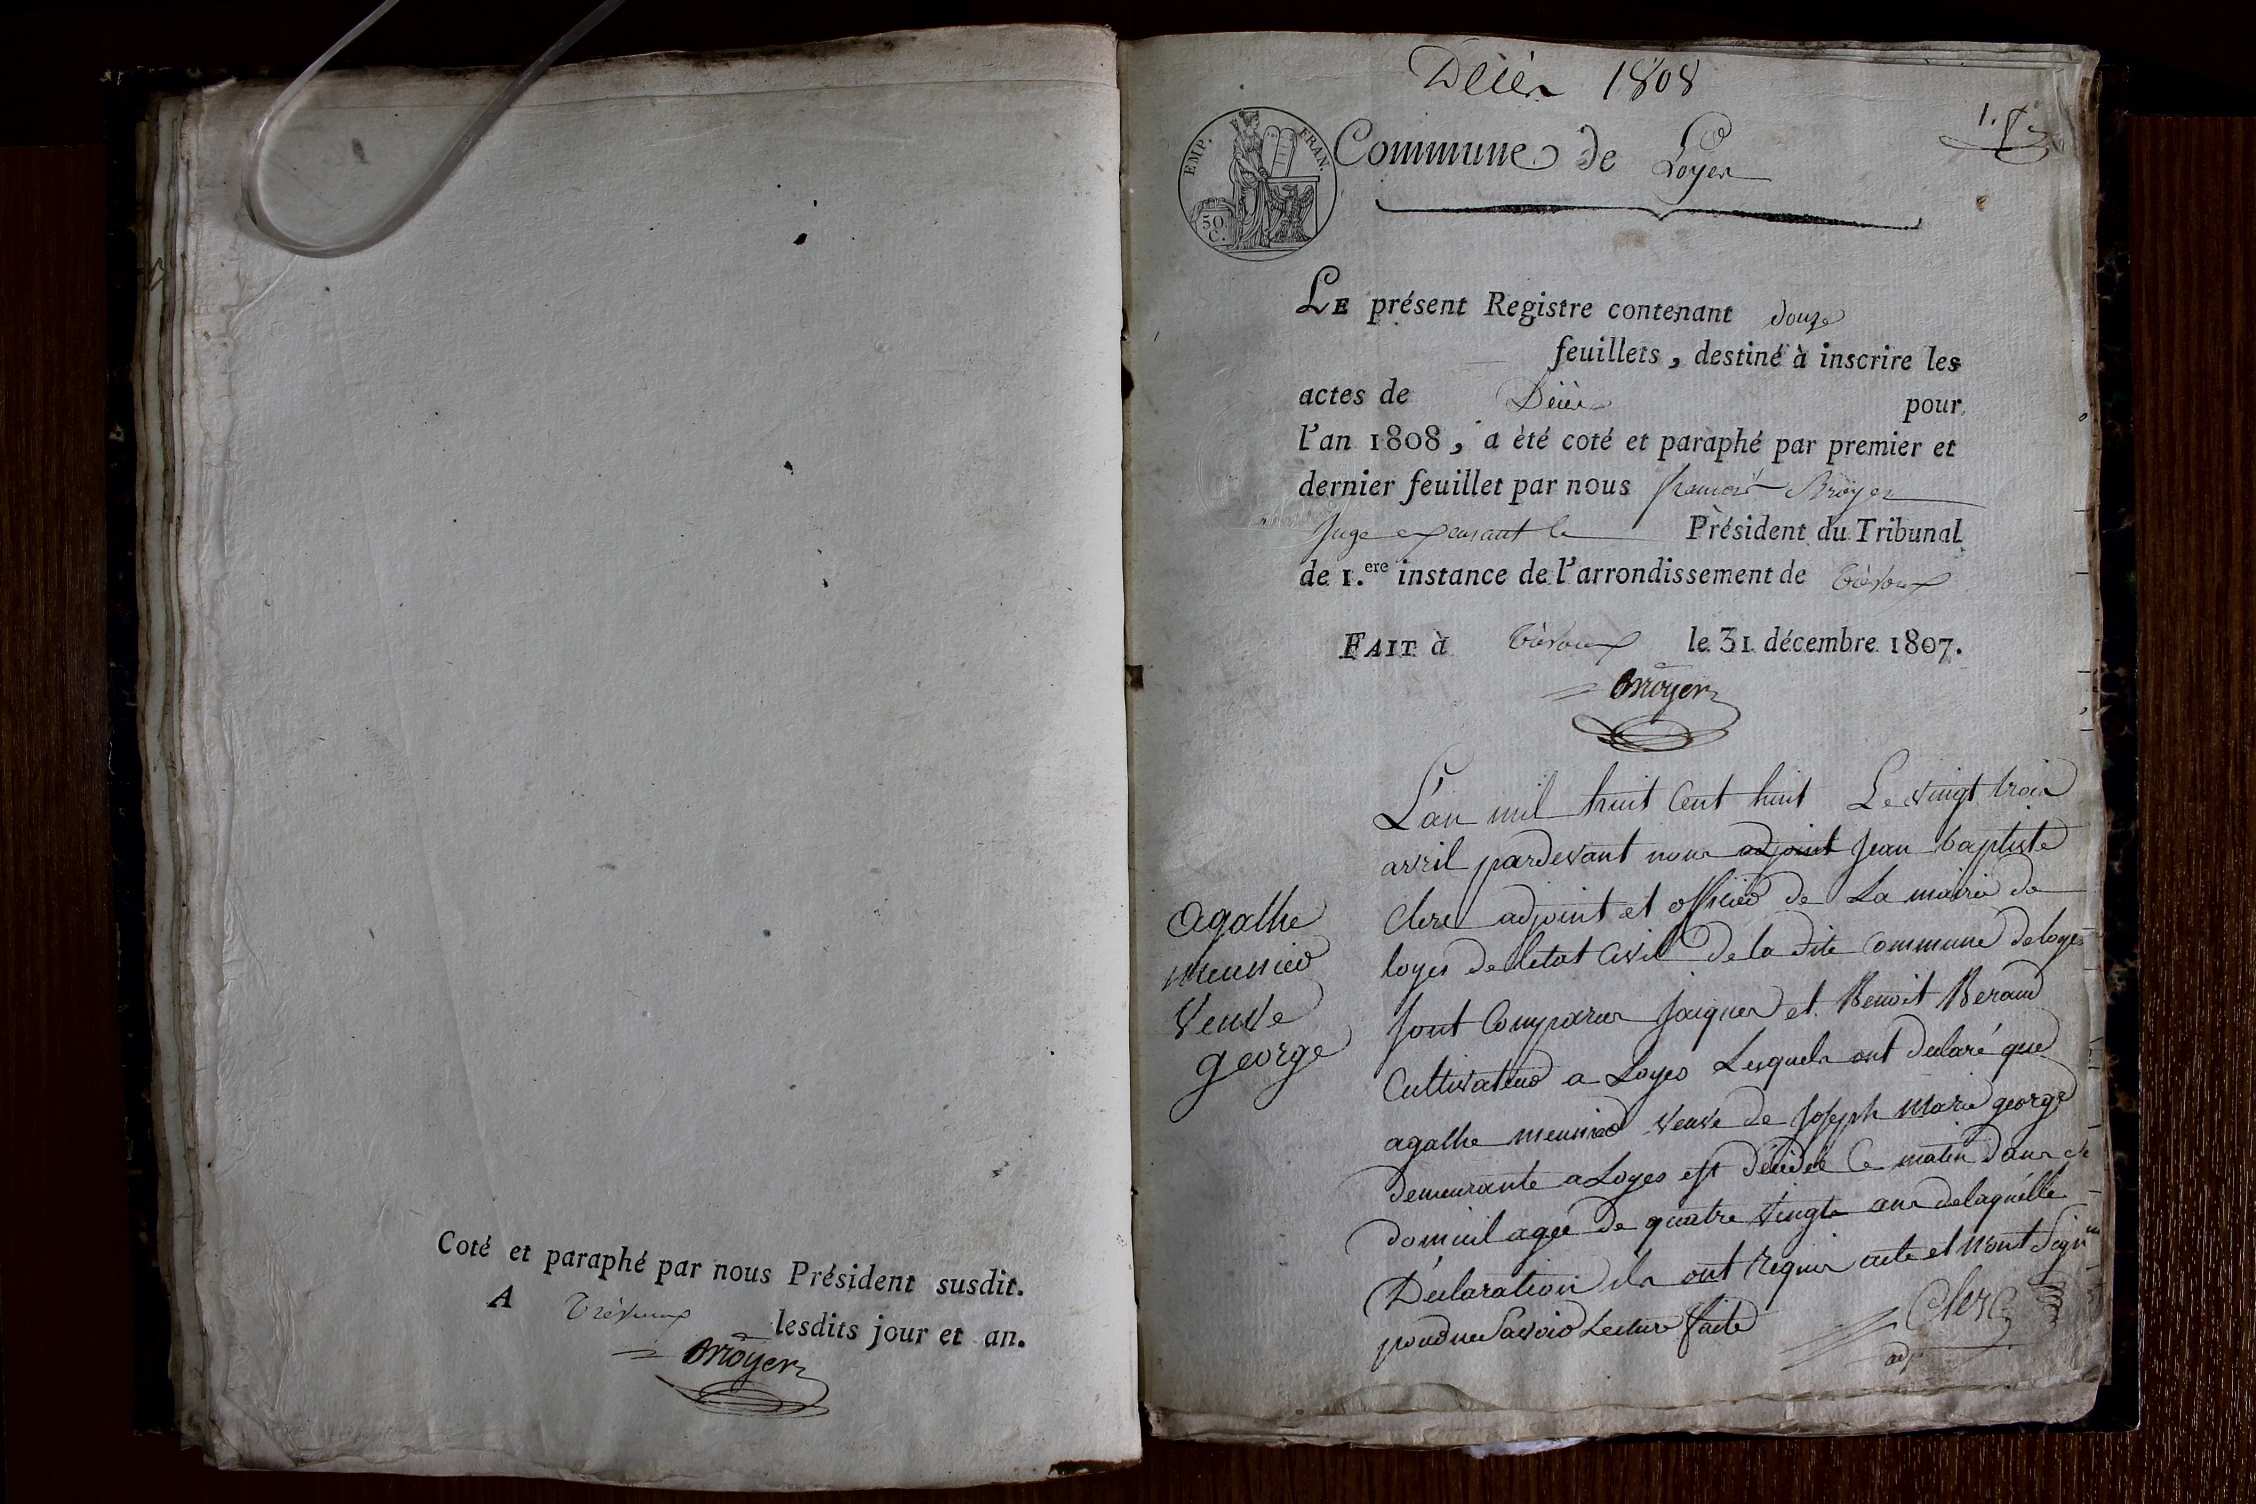 Coté et paraphé par nous Président susdit.
A Trévoux lesdits jour et an.
Broyer
Décès 1808
1.
EMP. FRAN.
50 C.
Commune de Loyes
LE présent Registre contenant douze
feuillets, destiné à inscrire les
actes de Décès pour
l'an 1808, a été coté et paraphé par premier et
dernier feuillet par nous françois Broyer
Juge exerçant le Président du Tribunal
de 1.ere instance de l'arrondissement de Trévoux
FAIT à Trévoux le 31 décembre 1807.
Broyer
agathe
meunier
veuve
george
L'an mil huit cent huit Le vingt trois
avril pardevant nous adjoint jean baptiste
clerc adjoint et officier de La mairie de
loyes de letat civil de la dite commune de loyes
sont comparus jaques et Benoit Beraud
cultivateur a Loyes Lesquels ont declaré que
agathe meunier veuve de joseph marie george
demeurante a Loyes est décédée ce matin dans
domicil agée de quatre vingts ans delaquelle
Déclaration ils ont requis acte et nont signé
pour ne savoir Lecture faite
Clerc
adj